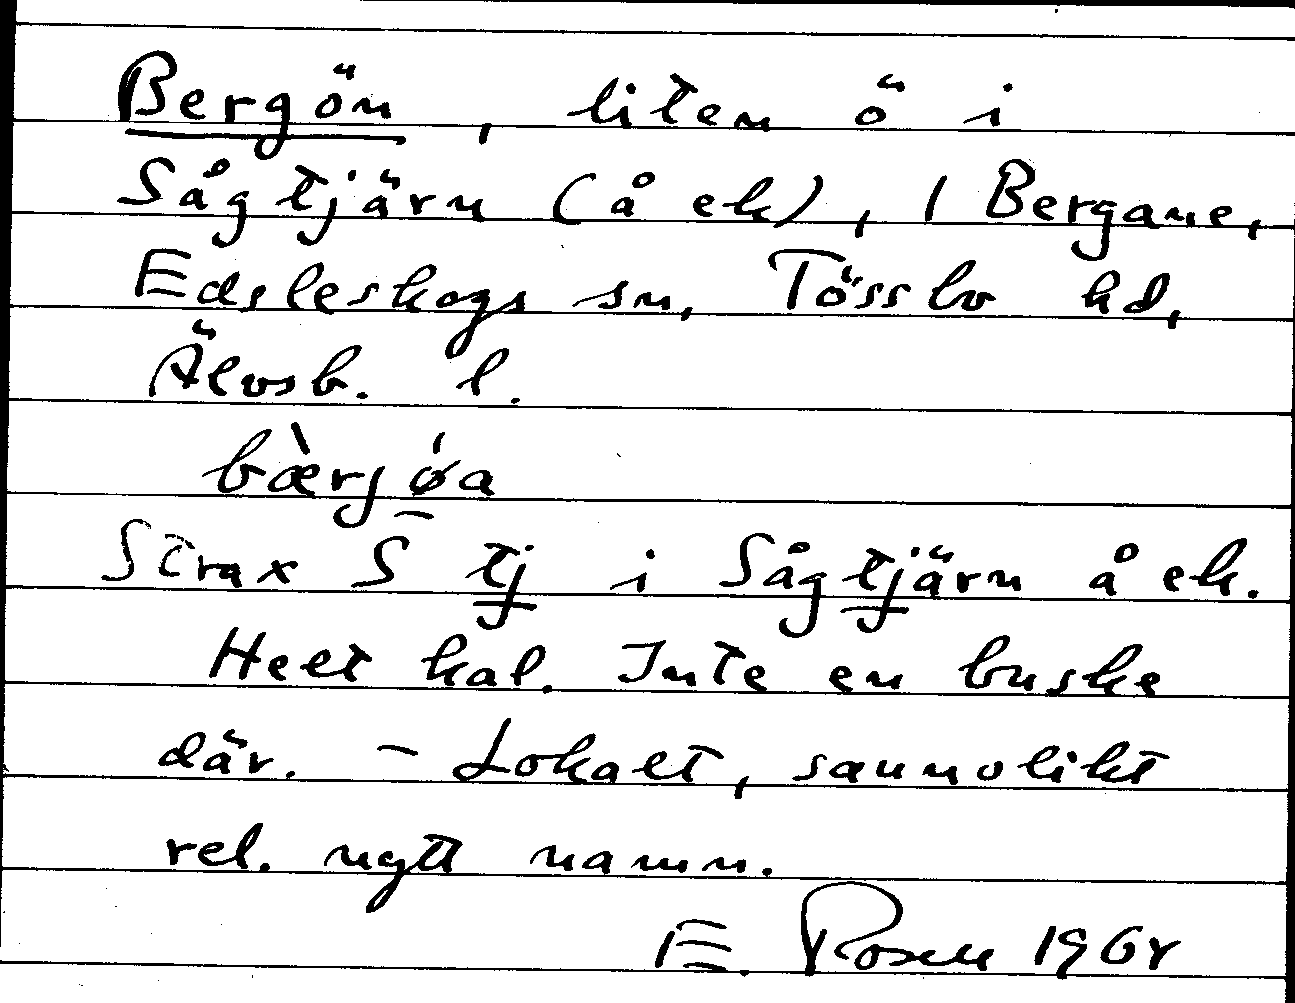 Bergön, liten ö i
Sågtjärn (å ek), 1 Bergane,
Edsleskogs sn, Tössbo hd,
Älvsb. l.
bæ̀rjǿa
Strax S tj i Sågtjärn å ek.
Helt kal. Inte en buske
där. – Lokalt, sannolikt
rel. nytt namn.
E. Rosen